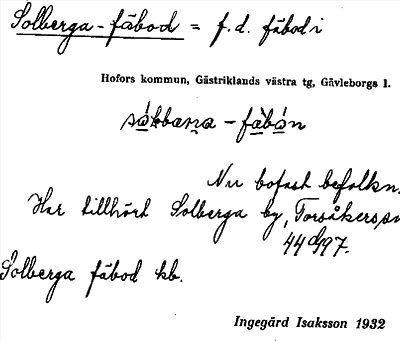 Solberga-fäbod = f.d. fäbod i
Hofors kommun, Gästriklands västra tg, Gävleborgs l.
såkbana - fàbón
Nu bofast befolkn.
Har tillhört Solberga by, Torsåkers sn
44 9/97.
Solberga fäbod kb.
Ingegärd Isaksson 1932